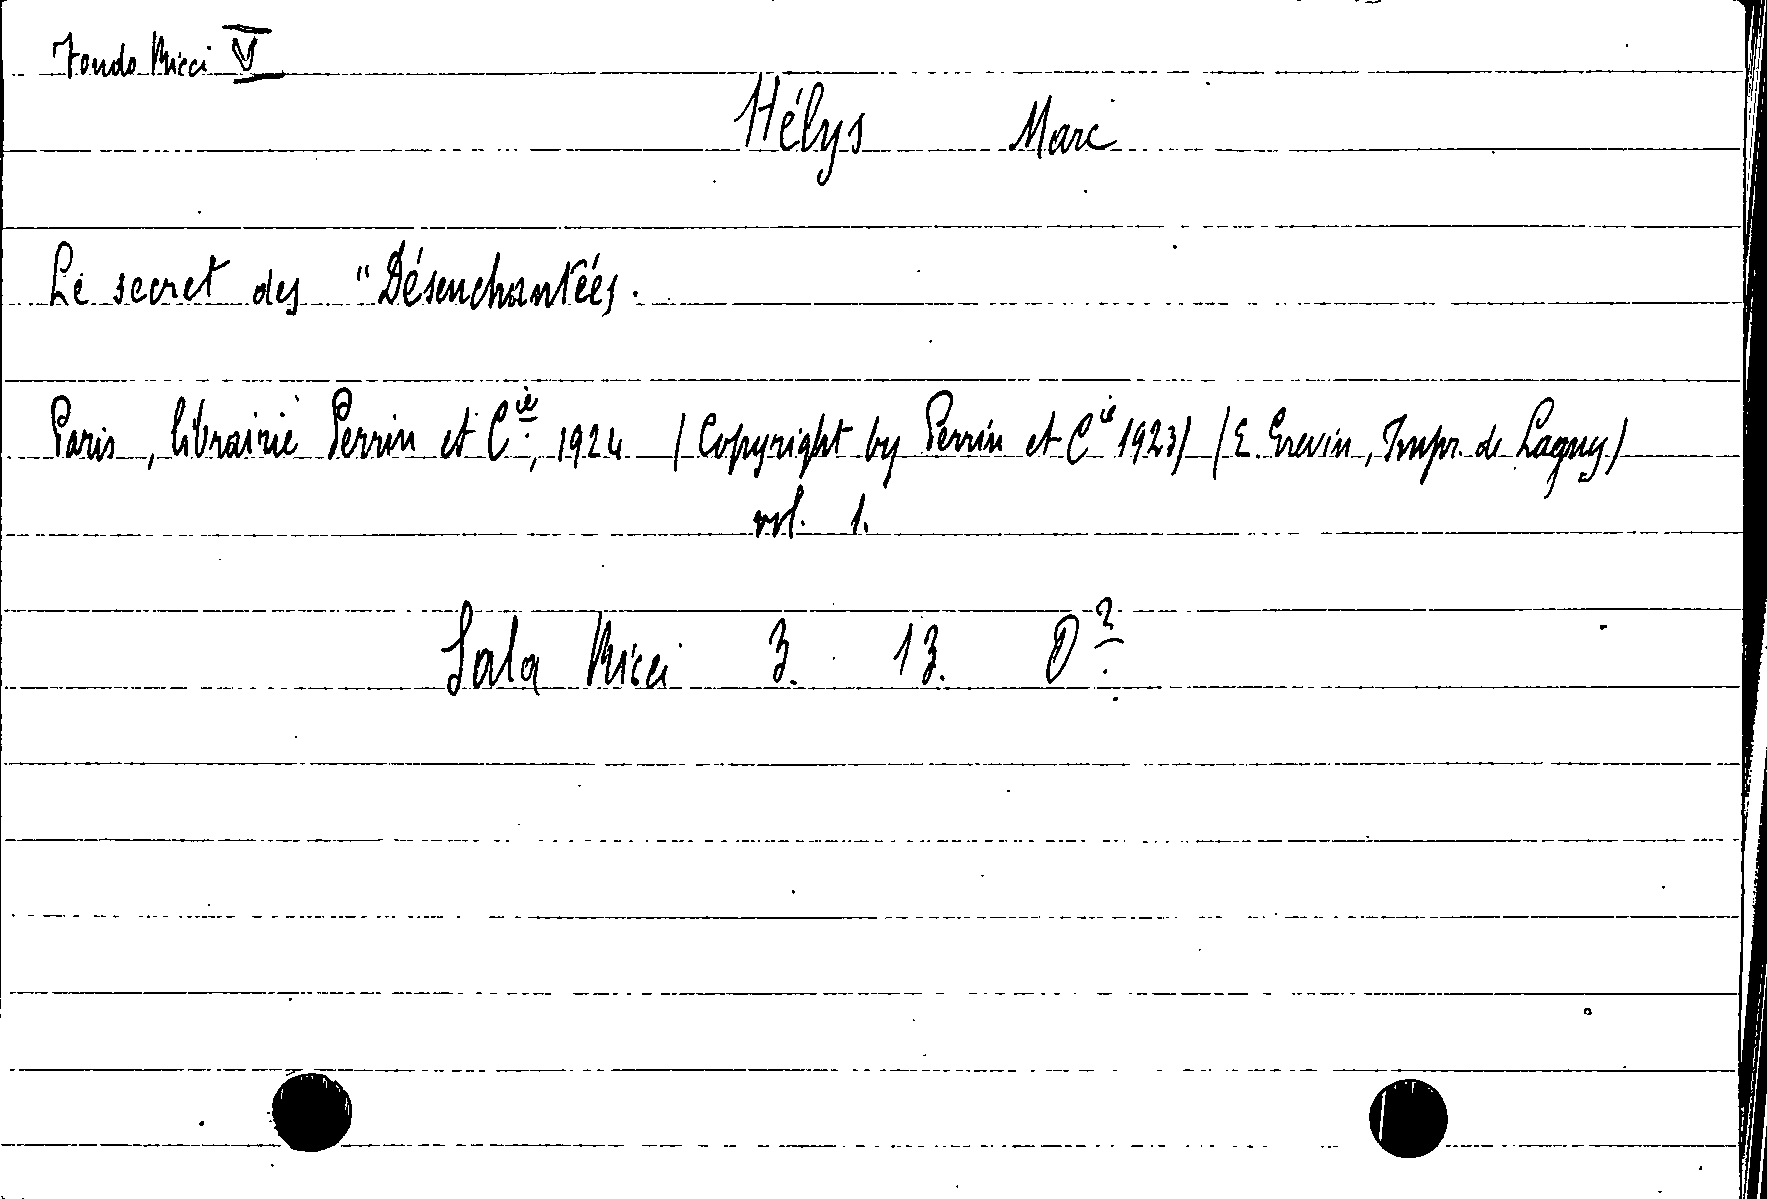 Fondo Ricci V
Hélys Marc
Le secret des "Désenchantées.
Paris, librairie Perrin et Cie, 1924 (Copyright by Perrin et Cie 1923) (E. Grevin, Impr. de Lagny)
vol. 1.
Sala Ricci 3. 13. D²